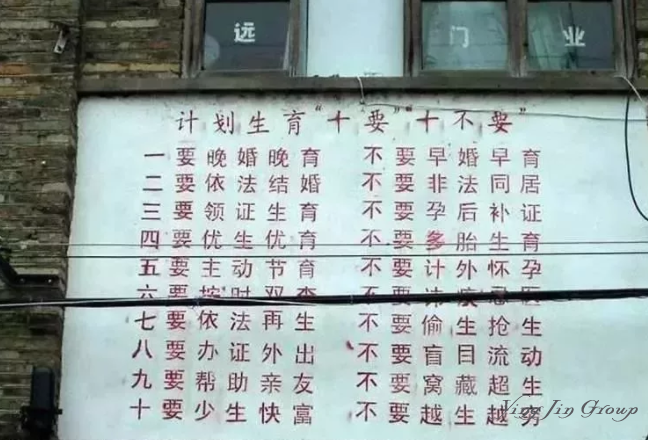 远 门 业
计划生育“十要”“十不要”
一要晚婚晚育 不要早婚早育
二要依法结婚 不要非法同居
三要领证生育 不要孕后补证
四要优生优育 不要多胎生育
五要主动节育 不要计外怀孕
六要按时双查 不要讳疾忌医
七要依法再生 不要偷生抢生
八要办证外出 不要盲目流动
九要帮助亲友 不要窝藏超生
十要少生快富 不要越生越穷
Ying Jin Group